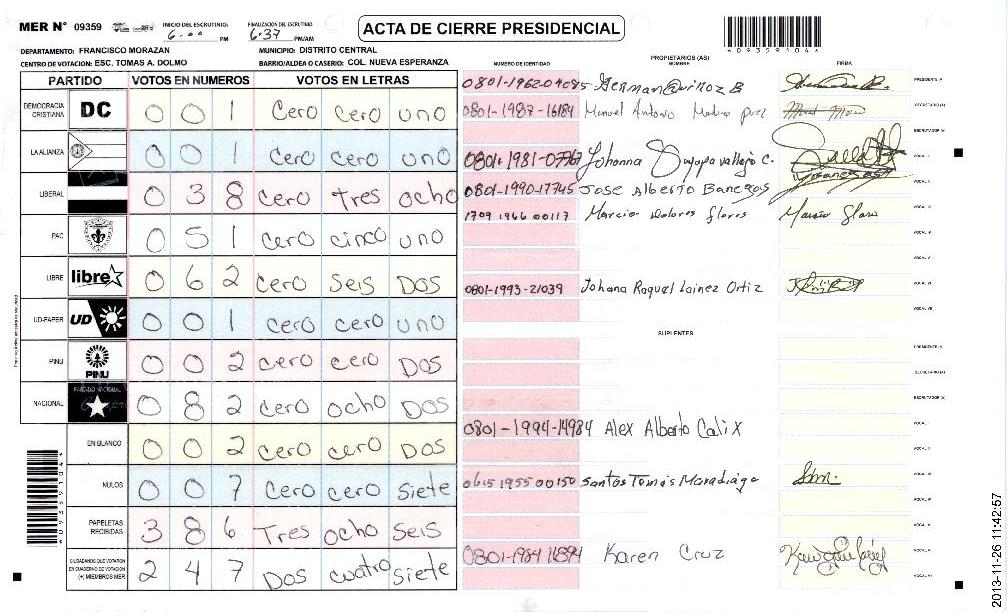 MER N° 09359 INICIO DEL ESCRUTINIO: 6:00 PM FINALIZACION DEL ESCRUTINIO: 6:37 PM/AM ACTA DE CIERRE PRESIDENCIAL
*09359104*
DEPARTAMENTO: FRANCISCO MORAZAN MUNICIPIO: DISTRITO CENTRAL
CENTRO DE VOTACION: ESC. TOMAS A. DOLMO BARRIO/ALDEA O CASERIO: COL. NUEVA ESPERANZA
PARTIDO VOTOS EN NUMEROS VOTOS EN LETRAS
DEMOCRACIA CRISTIANA DC 0 0 1 Cero Cero uno
LA ALIANZA 0 0 1 Cero Cero uno
LIBERAL 0 3 8 Cero tres ocho
PAC 0 5 1 Cero cinco uno
LIBRE libre 0 6 2 Cero Seis Dos
UD-FAPER UD 0 0 1 Cero cero uno
PINU PINU 0 0 2 cero cero Dos
NACIONAL PARTIDO NACIONAL 0 8 2 Cero ocho Dos
EN BLANCO 0 0 2 cero cero Dos
NULOS 0 0 7 Cero cero Siete
PAPELETAS RECIBIDAS 3 8 6 Tres ocho Seis
CIUDADANOS QUE VOTARON EN CUADERNO DE VOTACION (+) MIEMBROS MER 2 4 7 Dos cuatro siete
PROPIETARIOS (AS)
NUMERO DE IDENTIDAD NOMBRE FIRMA
0801-1962-04085 German Quiroz B PRESIDENTE (A)
0801-1987-16184 Manuel Antonio SECRETARIO (A)
ESCRUTADOR (A)
Johanna Suyapa Vallejo C. VOCAL I
0801-1990-17745 Jose Alberto Banegas VOCAL II
1709 1966 00117 Marcia Dolores flores VOCAL III
VOCAL IV
VOCAL V
0801-1993-21039 Johana Raquel Lainez Ortiz VOCAL VI
VOCAL VII
SUPLENTES
PRESIDENTE (A)
SECRETARIO (A)
ESCRUTADOR (A)
0801-1994-14984 Alex Alberto Calix VOCAL I
VOCAL II
0615 1955 00150 Santos Tomás Maradiaga VOCAL III
VOCAL IV
VOCAL V
Karen Cruz
VOCAL VI
2013-11-26 11:42:57